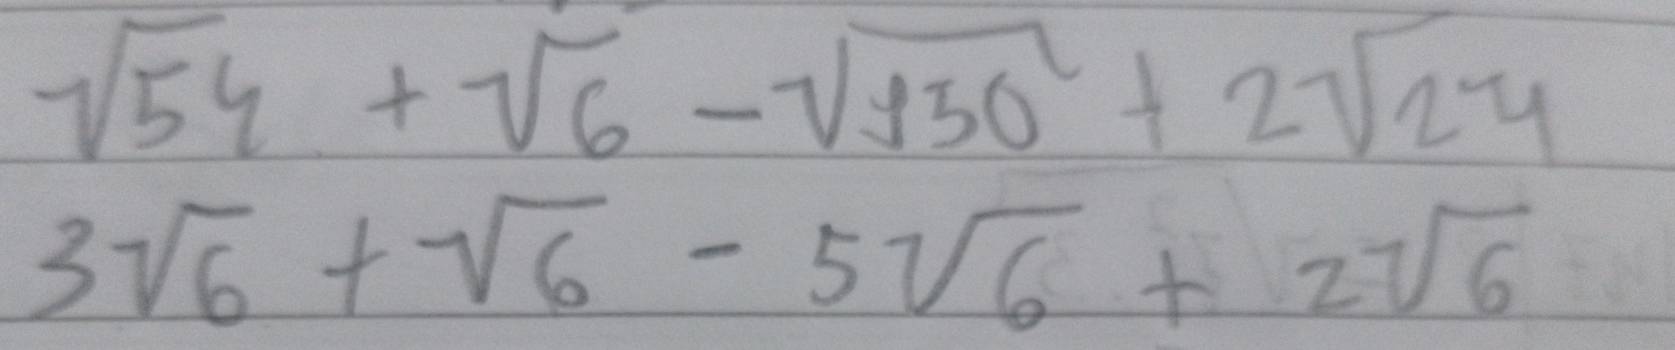 √54 + √6 - √150 + 2√24
3√6 + √6 - 5√6 + 2√6